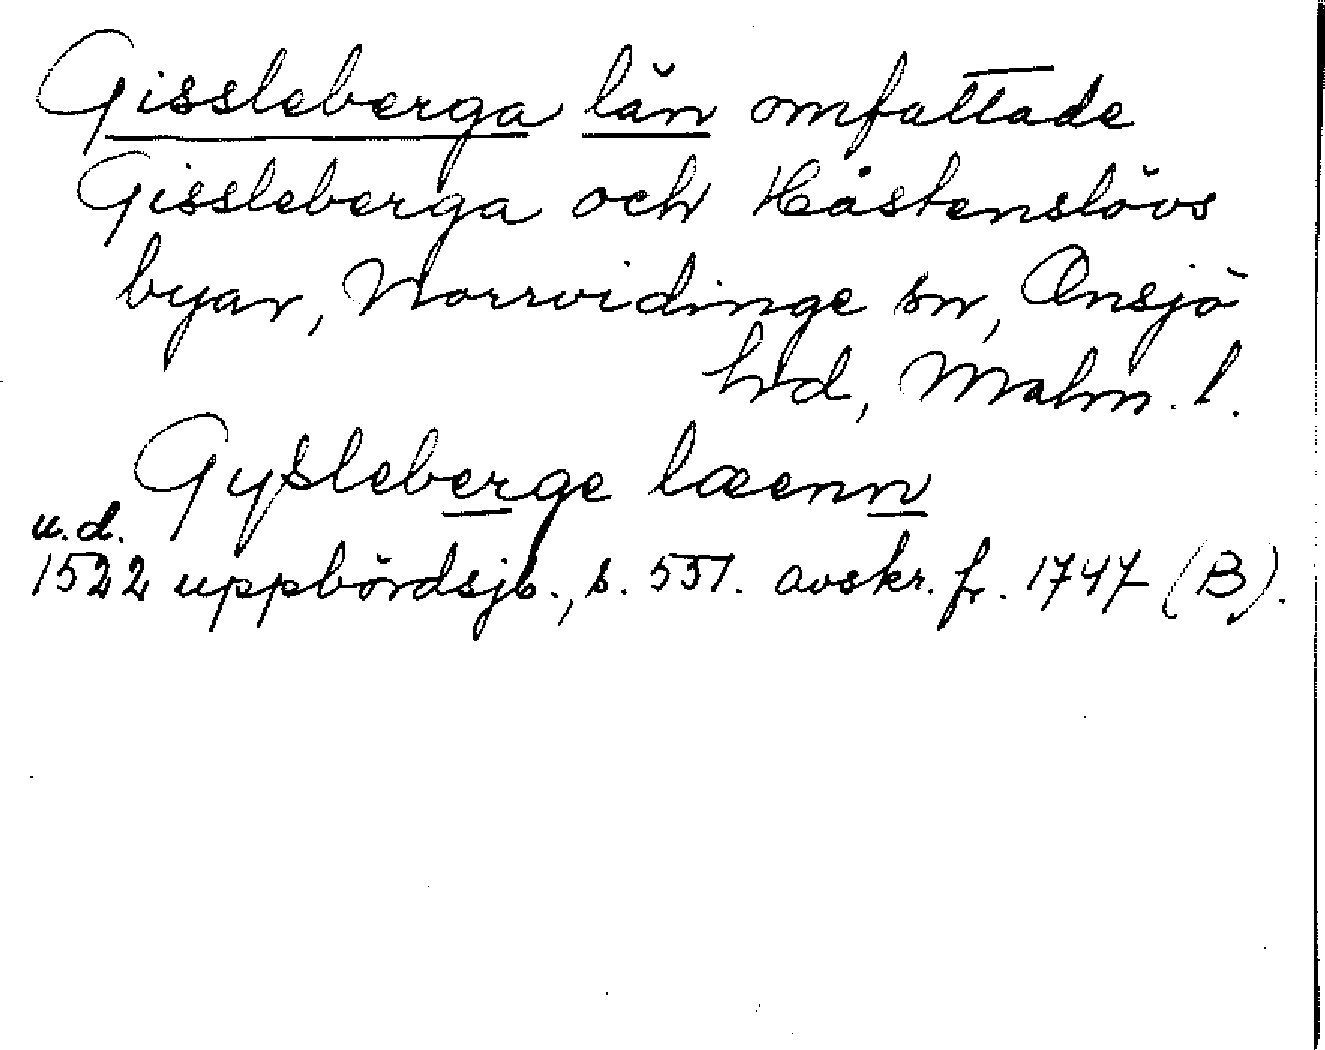 Gissleberga län omfattade
Gissleberga och Håstenslövs
byar, Norrvidinge sn, Onsjö
hd, Malm. l.
Gysleberge læenn
u.d.
1522 uppbördsjb., s. 551. avskr. fr. 1747 (B).